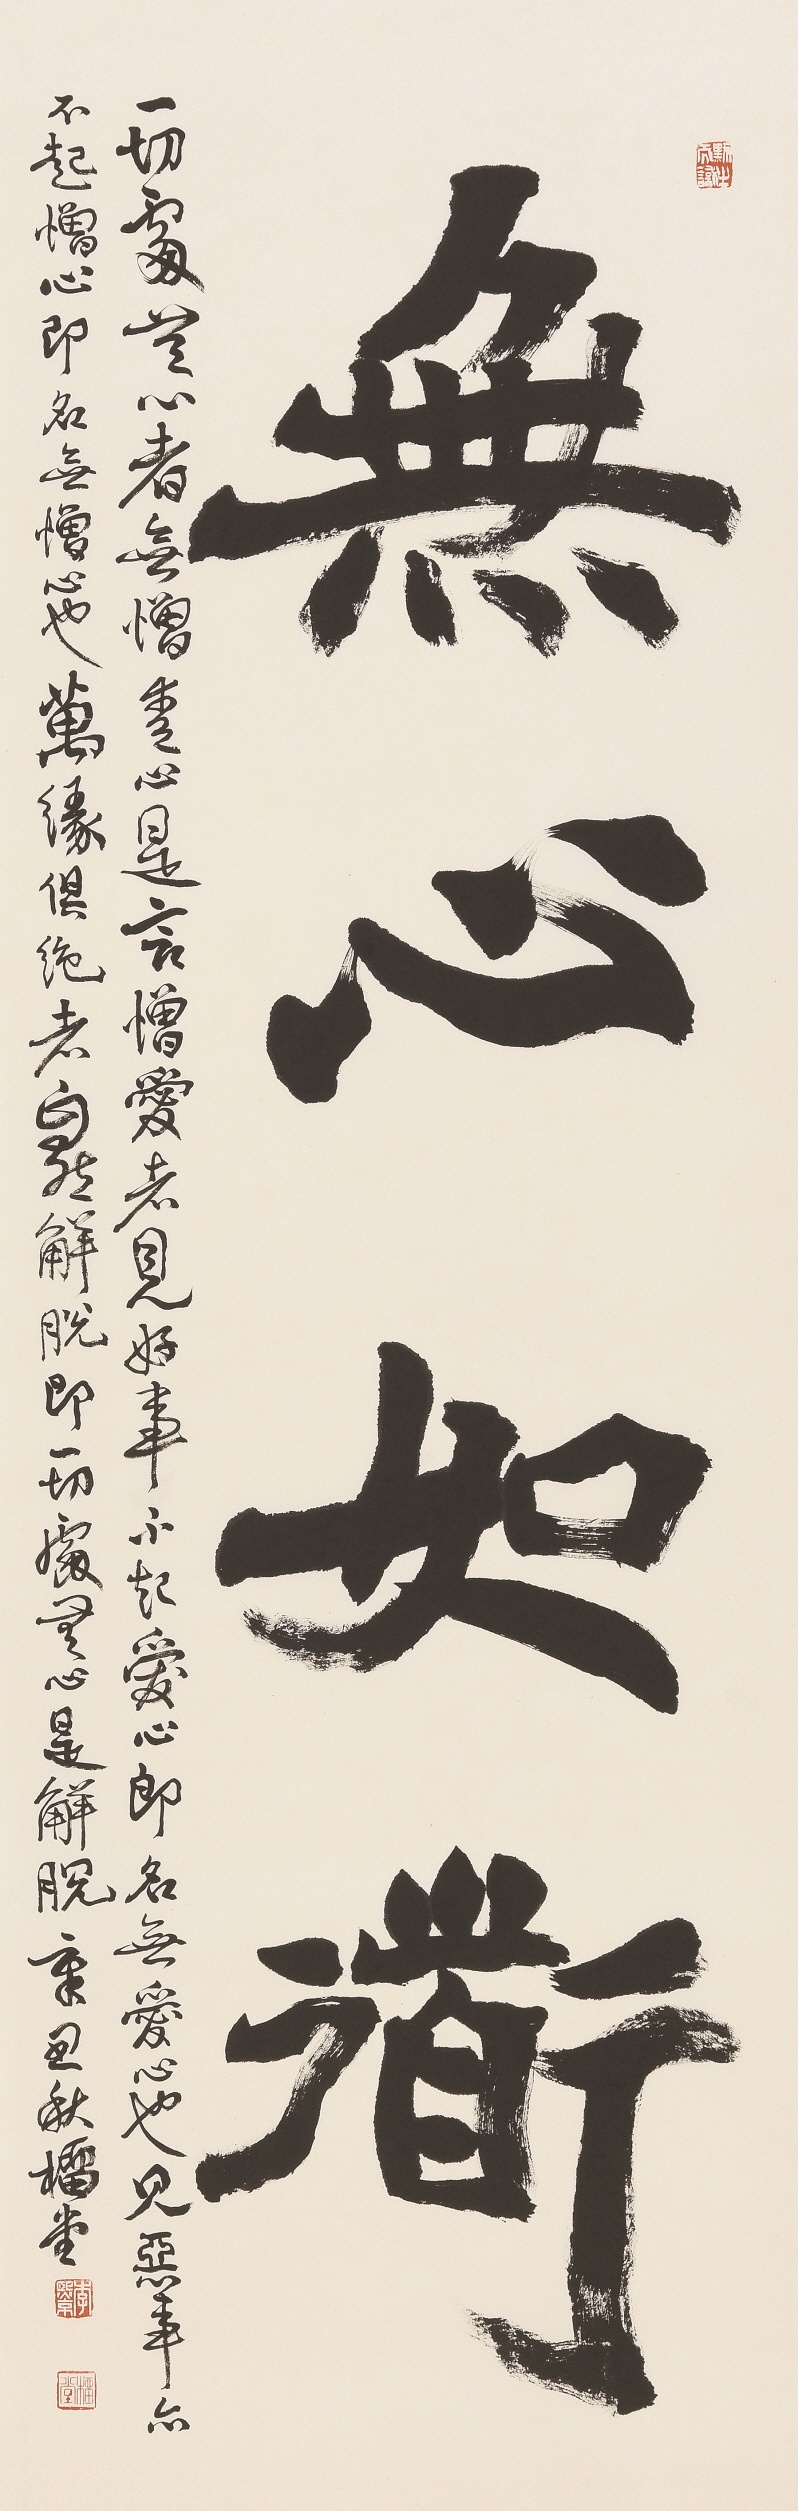 無心如衜
一切處無心者無憎愛心是言憎愛者見好事不起愛心即名無愛心也見惡事亦
不起憎心即名無憎心也萬緣俱絶者自然解脫即一切處無心是解脫辛丑秋榴堂